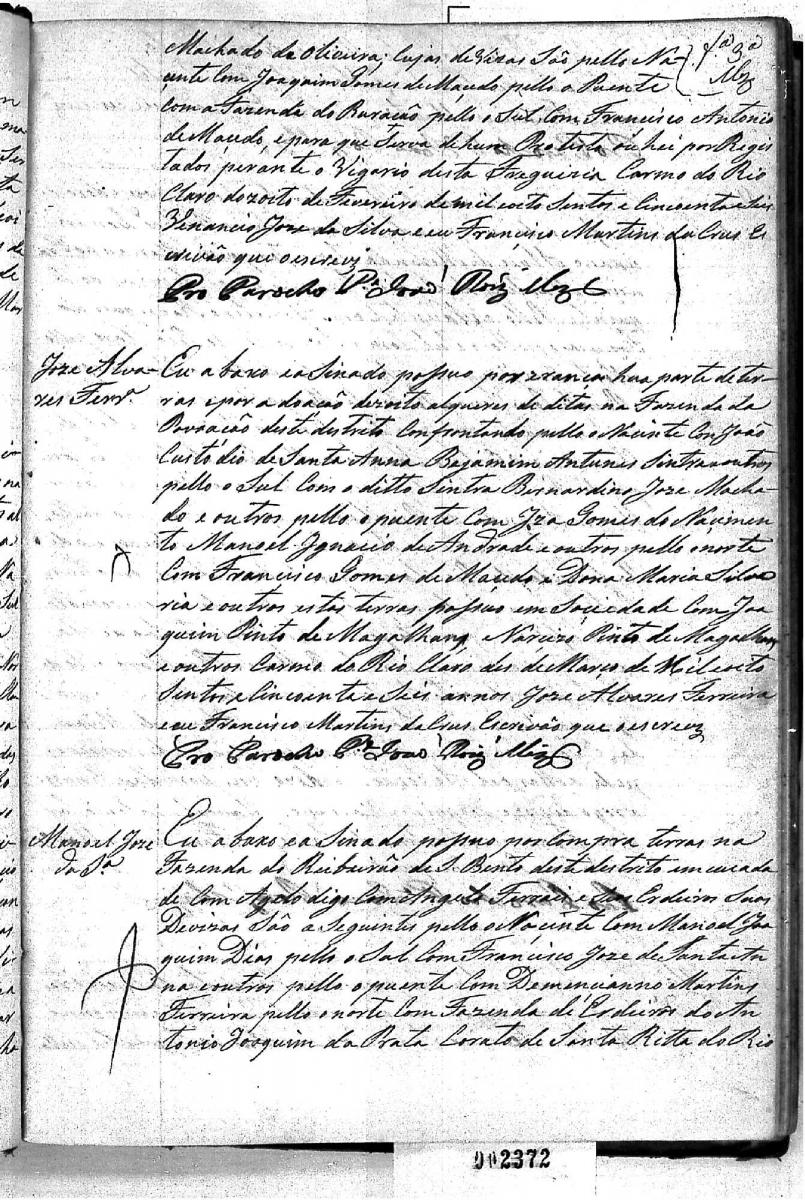 Machado de Oliveira; Cujas devizas São pello Na-
cente Com Joaquim Gomes de Macedo pello o Puente
Com a Fazenda do Buracão pello o Sul Com Francisco Antonio
de Macedo, e para que Serva de hum Protesto ou hei por Regis
tados perante o Vigario desta Freguezia Carmo do Rio
Claro dozoito de Fevereiro de mil oito Sentos e Cincoenta e Seis
Venancio Joze da Silva e eu Francisco Martins da Crus Es
crivão que o escrevi
Pro Parocho Pe João Roiz Mez
fa 3a
Mez
Joze Alva-
res Ferra.
Eu a baxo e a Sinado possuo por erança hua parte de ter-
ras e por a doação dezoito alqueres de ditas na Fazenda da
Povoação deste destrito Confrontando pello o Nacente Com João
Custódio de Santa Anna Bejamim Antunes Sintra e outros
pello o Sul Com o ditto Sintra Bernardino Joze Macha-
do e outros pello o puente Com Iza Gomes do Nacimen-
to Manoel Ignacio de Andrade e outros, pello o norte
Com Francisco Gomes de Macedo e Dona Maria Silve
ria e outros estas terras possuo em Sociedade Com Joa
quim Pinto de Magalhans e Narcizo Pinto de Magalhans
e outros Carmo do Rio Claro des de Março de Mil oito
Sentos e Cincoenta e Seis annos Joze Alvares Ferreira
e eu Francisco Martins da Crus Escrivão que o escrevi
Pro Parocho Pe João Roiz Mez
Manoel Joze
da Sa
Eu a baxo e a Sinado possuo por Compra terras na
Fazenda do Ribeirão de S. Bento deste destrito em
de Com Agelo digo Com Angelo Ferraz e Seus Erdeiros Suas
Devizas São a Seguentes pello o Nacente Com Manoel Joa
quim Dias pello o Sul Com Francisco Joze de Santa An
na e outros pello o puente Com Demencianno Martins
Ferreira pello o norte Com Fazenda de Erdeiros do An
tonio Joaquim da Prata Corato de Santa Ritta do Rio
002372